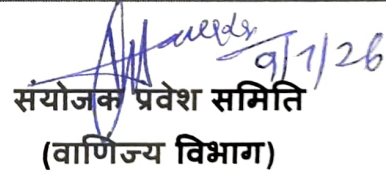 9/7/26
संयोजक प्रवेश समिति
(वाणिज्य विभाग)